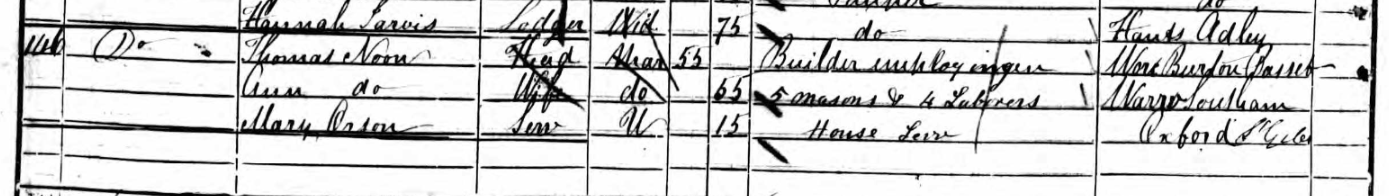 Pauper do
Hannah Jarvis Lodger Wid 75 do Hants Adley
146 Do Thomas Noon Head Mar 55 Builder employing men Burton Basset
Ann do Wife do 55 5 Masons & 4 Laborers Southam
Mary Orson Serv U 15 House Serv Oxford St Giles